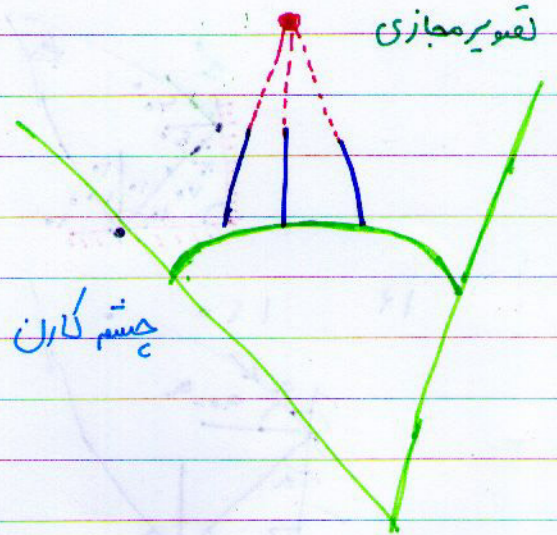 تصویر مجازی
چشم کارن